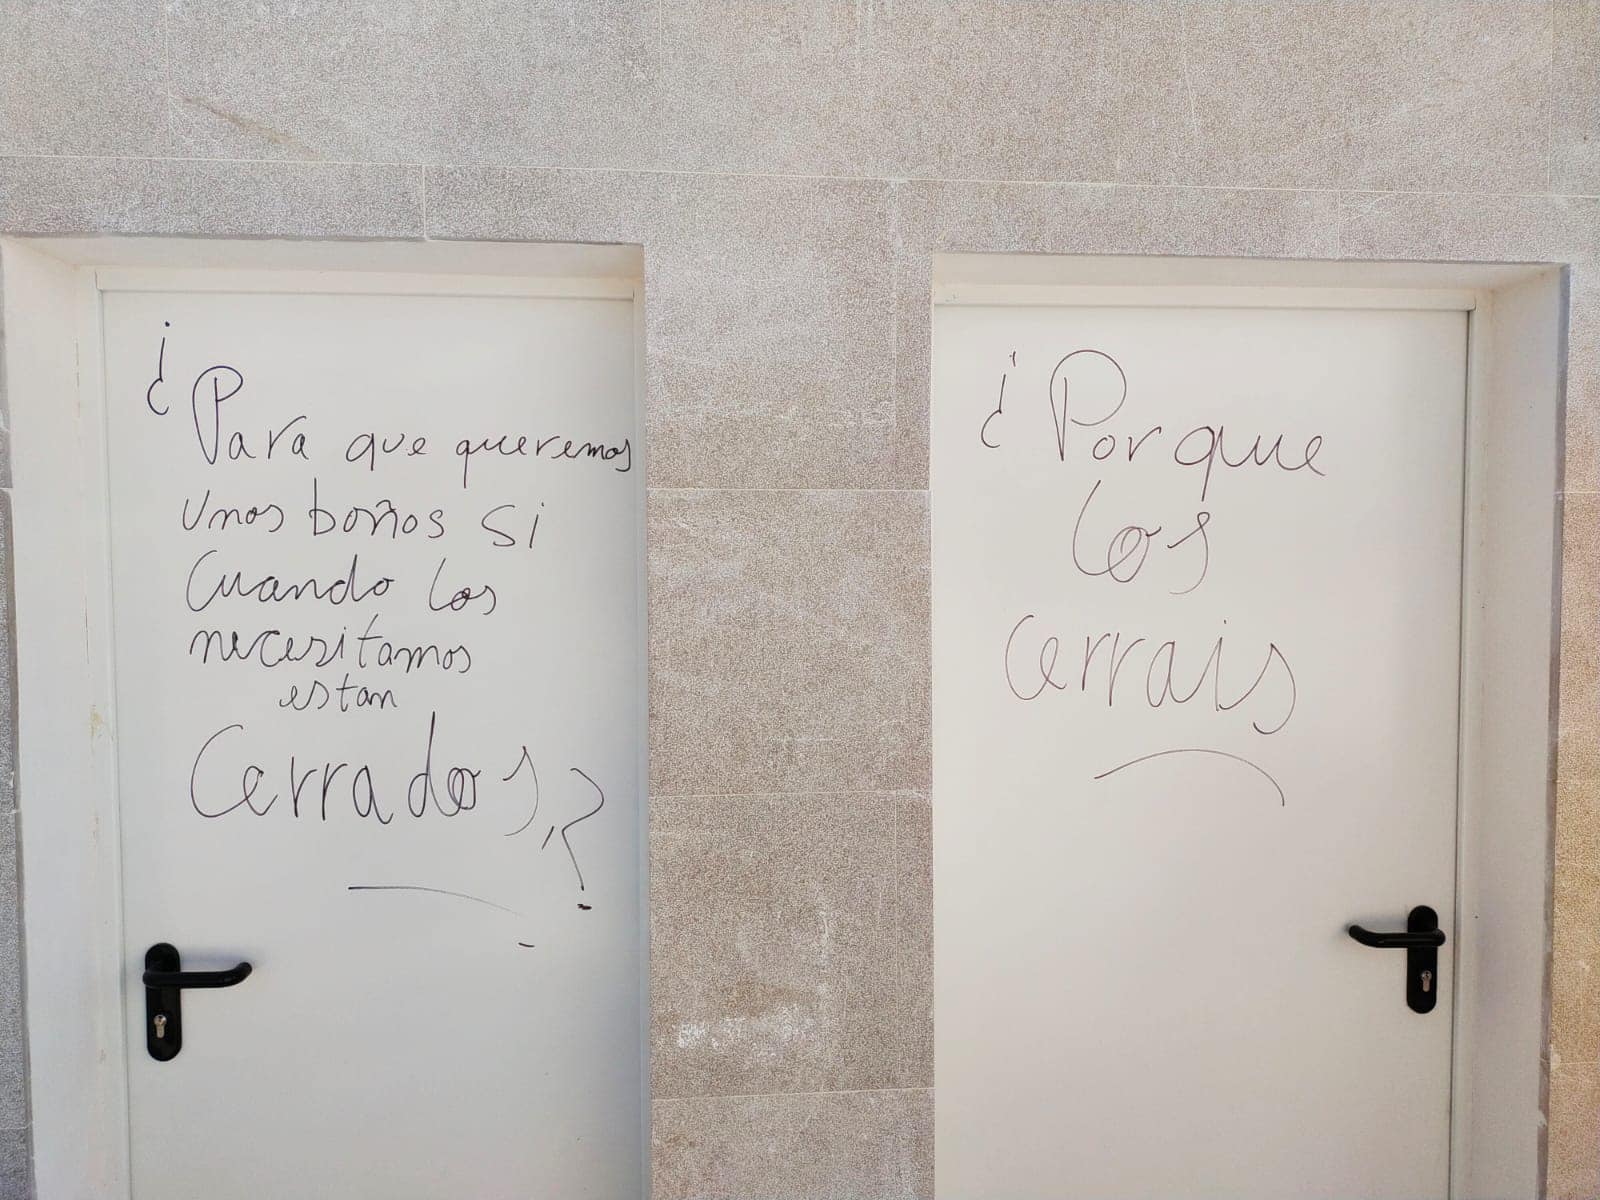 ¿Para que queremos
unos baños si
Cuando los
necesitamos
estan
Cerrados?
¿Porque
los
cerrais